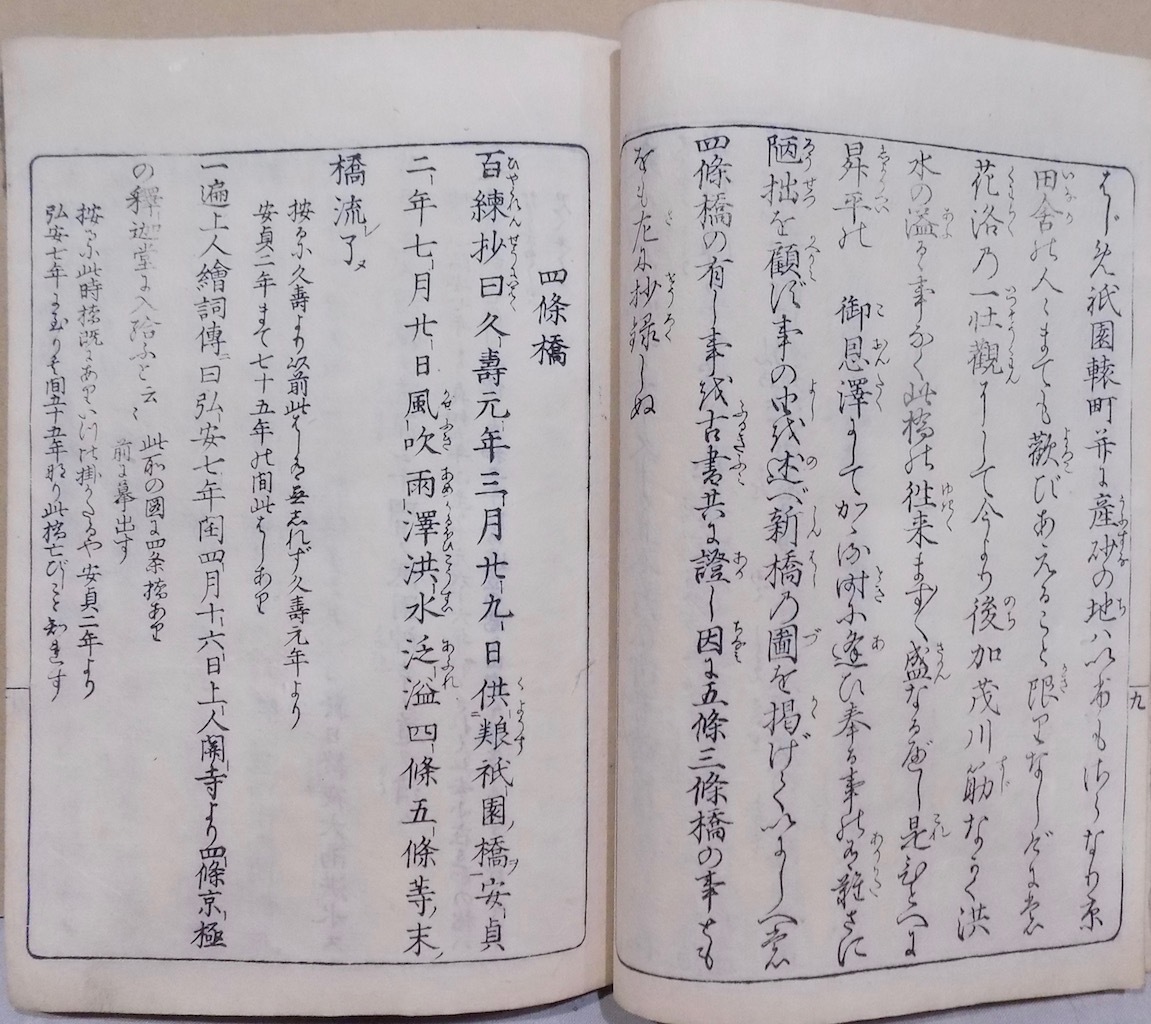 はじめ祇園轅町并に産砂の地ハいふもさらなり京
田舎の人々までも歓びあえること限りなしげに
花洛の一壮觀にして今より後加茂川筋ながく洪
水の溢るゝ事なく此橋の往来ます〳〵盛なるべし是ひとへに
昇平の 御恩澤にしてかゝる時に逢ひ奉る事の有難さに
陋拙を顧ず事の由を述べ新橋の圖を掲げていにしへ
四條橋の有し事を古書共に證し因に五條三條橋の事をも
をも左に抄録しぬ
九
四條橋
百練抄曰久壽元年三月廿九日供粮祇園橋安貞
二年七月廿日風吹雨澤洪水泛溢四條五條等末
橋流了
按るに久壽より以前此はし有無しれず久壽元年より
安貞二年まで七十五年の間此はしあり
一遍上人繪詞傳曰弘安七年閏四月十六日上人関寺より四條京極
の釋迦堂に入給ふと云々 此所の圖に四条橋あり
前に摹出す
按らに此時橋既にありいつの掛かえるや安貞二年より
弘安七年に至りその間五十五年なり此橋亡びしこと知れず